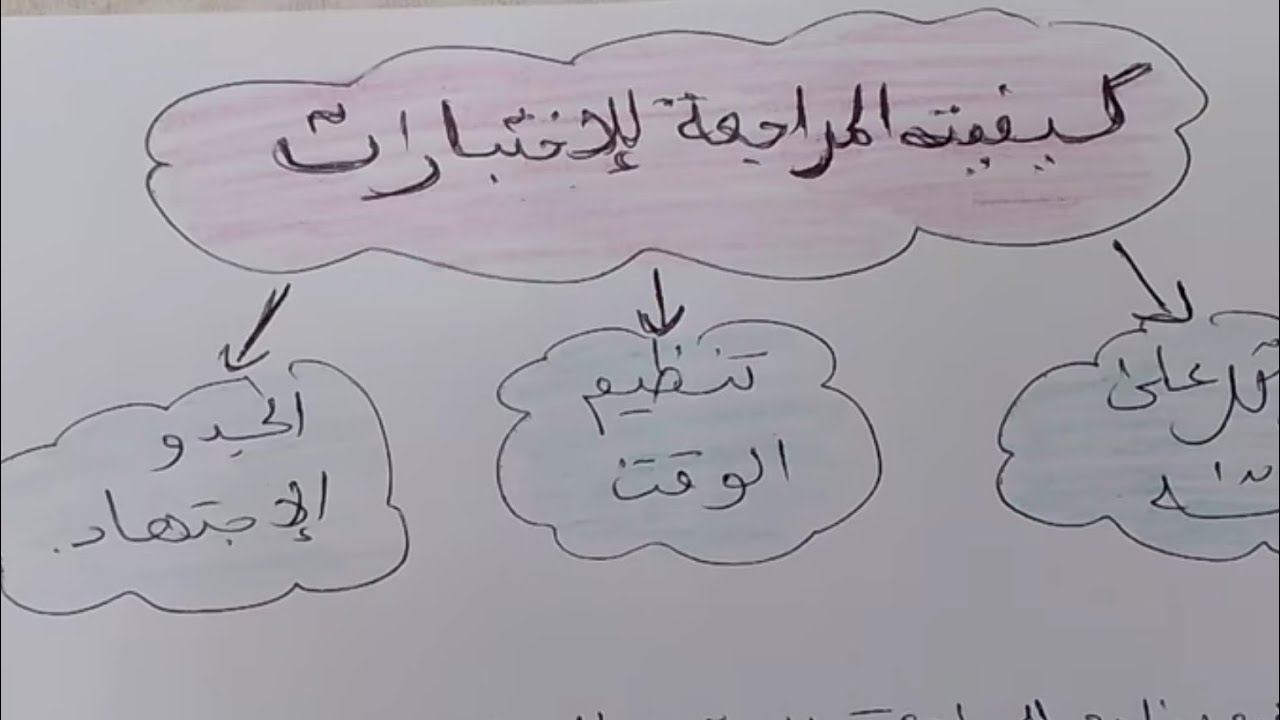 كيفية المراجعة للإختبارات
على
الله
تنظيم
الوقت
الجد و
الإجتهاد.